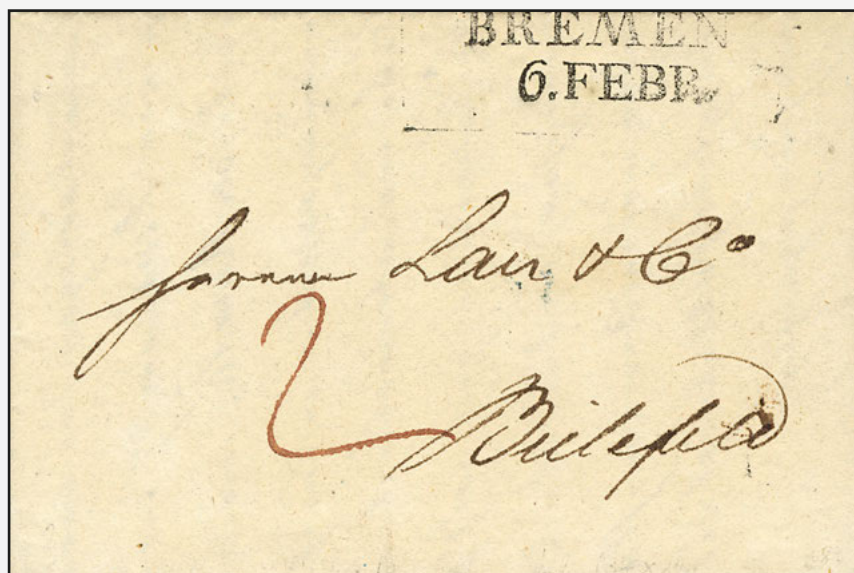 BREMEN
6. FEBR.
Herren Lau & Co
2
Bielefeld